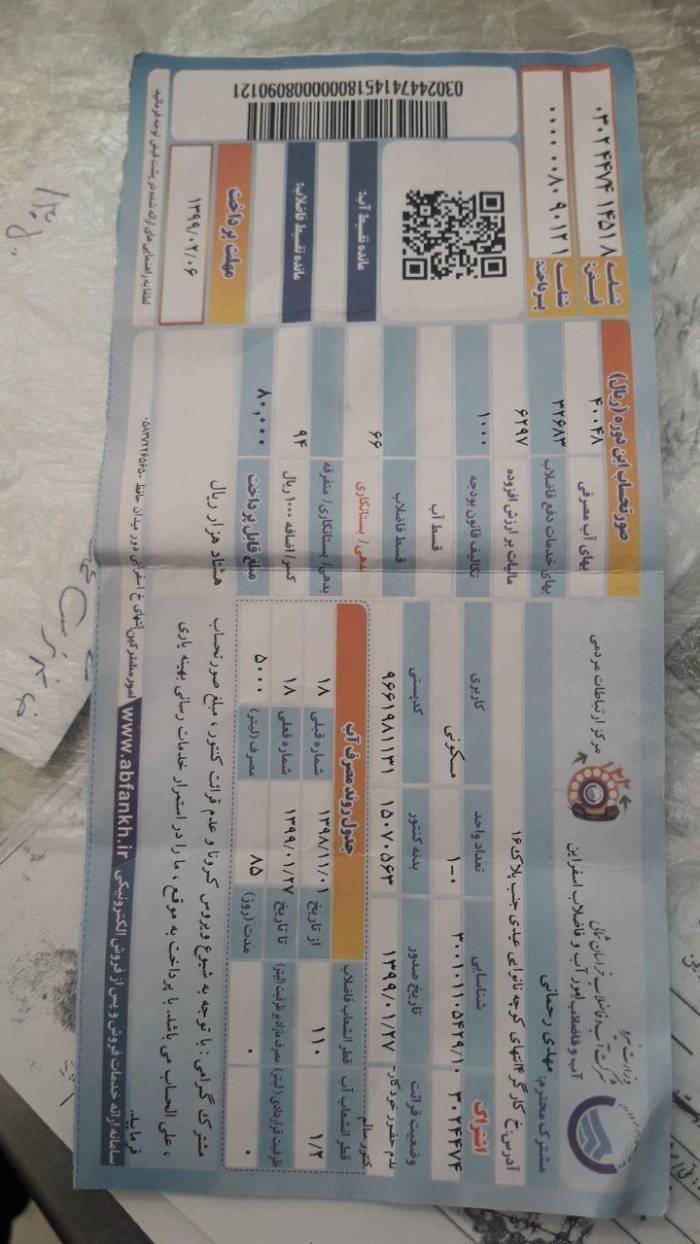 وزارت نیرو
شرکت آب و فاضلاب خراسان شمالی
آب و فاضلاب امور آب و فاضلاب اسفراین
مرکز ارتباطات مردمی
مشترک محترم: مهدی رحمانی
آدرس: خ کارگر ۴انتهای کوچه نانوایی عبادی جنب پلاک ۱۶
اشتراک شناسایی تعداد واحد کاربری
۳۰۲۴۴۷۴ ۳۰۰۱۰۱۱۰۵۴۲۹/۱۰ ۱-۰ مسکونی
وضعیت قرائت تاریخ صدور بدنه کنتور کدپستی
عدم حضور خودکار- کنتور سالم ۱۳۹۹/۰۱/۲۷ ۱۵۰۷۰۵۶۳ ۹۶۶۱۹۸۱۱۳۱
جدول روند مصرف آب
قطر انشعاب آب قطر انشعاب فاضلاب از تاریخ شماره قبلی
۱/۲ ۱۱۰ ۱۳۹۸/۱۱/۰۱ ۱۸
ظرفیت قراردادی (لیتر) مصرف مازاد بر ظرفیت (لیتر) تا تاریخ شماره فعلی
۱۳۹۹/۰۱/۲۷ ۱۸
مدت (روز) مصرف (لیتر)
۰ ۰ ۸۵ ۵۰۰۰
مشترک گرامی : با توجه به شیوع ویروس کرونا و عدم قرائت کنتور ، مبلغ صورتحساب
، علی الحساب می باشد. با پرداخت به موقع ، ما را در استمرار خدمات رسانی بهینه یاری
فرمایید.
سامانه ارائه خدمات فروش و پس از فروش الکترونیکی www.abfankh.ir
امور مشترکین انتهای خ اسفراینی دور میدان حافظ ۰۵۸۳۷۲۲۶۵۶۵
صورتحساب این دوره (ریال)
بهای آب مصرفی ۴۰۰۴۸
بهای خدمات دفع فاضلاب ۳۲۶۸۳
مالیات بر ارزش افزوده ۶۲۹۷
تکالیف قانون بودجه ۱۰۰۰
قسط آب
قسط فاضلاب
بدهی / بستانکاری ۶۶
بدهی/ بستانکاری/ متفرقه
کسر/ اضافه ۱۰۰۰ ریال ۹۴
مبلغ قابل پرداخت ۸۰,۰۰۰
هشتاد هزار ریال
شناسه قبض: ۰۳۰۲۴۴۷۴ ۱۴۵۱۸
شناسه پرداخت: ۰۰۰۰۰۰۸۰۹۰۱۲۱
مانده تقسیط آب:
مانده تقسیط فاضلاب:
مهلت پرداخت
۱۳۹۹/۰۲/۰۶
03024474145180000008090121
لطفا به راهنمایی های ارائه شده در پشت قبض توجه فرمائید